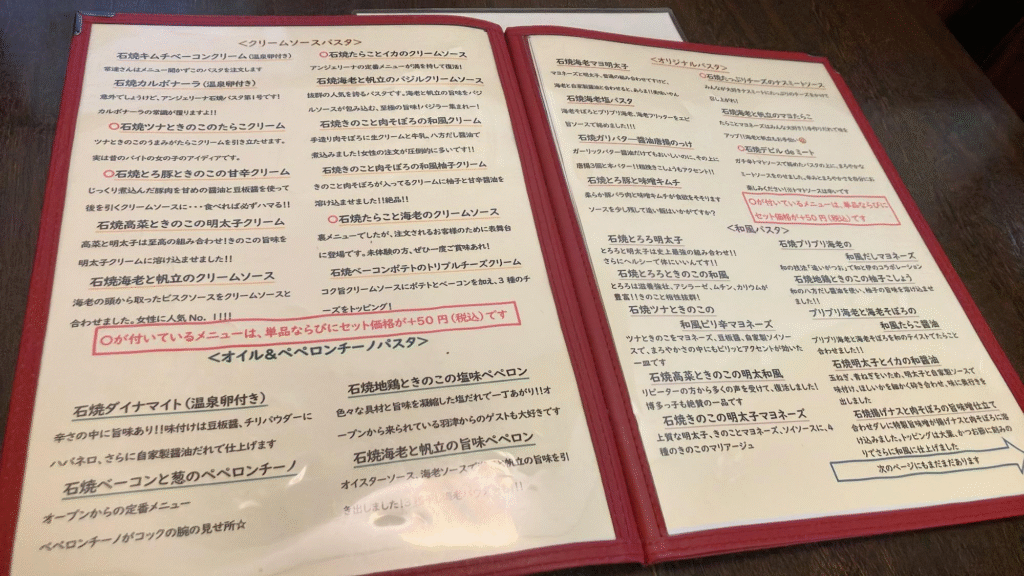 <クリームソースパスタ>
石焼キムチベーコンクリーム(温泉卵付き)
常連さんはメニュー開かずこのパスタを注文します
石焼カルボナーラ(温泉卵付き)
意外でしょうけど、アンジェリーナ石焼パスタ第1号です!
カルボナーラの常識が覆りますよ!!
〇石焼ツナときのこのたらこクリーム
ツナときのこのうまみがたらこクリームを引き立たせます。
実は昔のバイトの女の子のアイディアです。
〇石焼とろ豚ときのこの甘辛クリーム
じっくり煮込んだ豚肉を甘めの醤油と豆板醤を使って
後を引くクリームソースに・・・食べれば必ずハマる!!
石焼高菜ときのこの明太子クリーム
高菜と明太子は至高の組み合わせ!きのこの旨味を
明太子クリームに溶け込ませました!!
石焼海老と帆立のクリームソース
海老の頭から取ったビスクソースをクリームソースと
合わせました。女性に人気No.1!!!
〇石焼たらことイカのクリームソース
アンジェリーナの定番メニューが満を持して復活!
石焼海老と帆立のバジルクリームソース
抜群の人気を誇るパスタです。海老と帆立の旨味をバジ
ルソースが包み込む、至極の旨味!バジラー集まれー!
石焼きのこと肉そぼろの和風クリーム
手造り肉そぼろに生クリームと牛乳、八方だし醤油で
煮込みました!女性の注文が圧倒的に多いです!!
石焼きのこと肉そぼろの和風柚子クリーム
きのこと肉そぼろが入ってるクリームに柚子と甘辛醤油を
溶け込ませました!!絶品!!
〇石焼たらこと海老のクリームソース
裏メニューでしたが、注文されるお客様のために表舞台
に登場です。未体験の方、ぜひ一度ご賞味あれ!
石焼ベーコンポテトのトリプルチーズクリーム
コク旨クリームソースにポテトとベーコンを加え、3種のチ
ーズをトッピング!
〇が付いているメニューは、単品ならびにセット価格が+50円(税込)です
<オイル&ペペロンチーノパスタ>
石焼ダイナマイト(温泉卵付き)
辛さの中に旨味あり!!味付けは豆板醤、チリパウダーに
ハバネロ、さらに自家製醤油だれで仕上げます
石焼ベーコンと葱のペペロンチーノ
オープンからの定番メニュー
ペペロンチーノがコックの腕の見せ所☆
石焼地鶏ときのこの塩味ペペロン
色々な具材と旨味を凝縮した塩だれで一丁あがり!!オ
ープンから来られている羽津からのゲストも大好きです
石焼海老と帆立の旨味ペペロン
オイスターソース、海老ソースで 帆立の旨味を引
き出しました!
<オリジナルパスタ>
石焼海老マヨ明太子
マヨネーズと明太子、普通の組み合わせですけど、
海老と自家製醤油に合わせると、あらま!!美味いやん
石焼海老塩パスタ
海老そぼろとプリプリ海老、海老フリッターをエビ
旨ソースで絡めました!!!
石焼ガリバタ―醤油唐揚のっけ
ガーリックバター醤油だけでもおいしいのに、その上に
唐揚3個と本バター!!粗挽きこしょうもアクセント!!
石焼とろ豚と味噌キムチ
柔らか豚バラ肉と味噌キムチが食欲をそそります
ソースを少し残して追い飯はいかがですか?
〇石焼たっぷりチーズのナスミートソース
みんなが大好きナスミートにたっぷりのチーズをかけて
召し上がれ!
石焼海老と帆立のマヨたらこ
たらことマヨネーズはみんな大好き!!手作りだれで味を
アップ!!海老と帆立もお手伝い
〇石焼デビル de ミート
ガチ辛トマトソースで絡めたパスタの上に、まろやかな
ミートソースをのせました。辛みとまろやかさを自分でお
楽しみください!!トマトソースは辛いです
〇が付いているメニューは、単品ならびに
セット価格が+50円(税込)です
<和風パスタ>
石焼とろろ明太子
とろろと明太子は史上最強の組み合わせ!!
さらにヘルシーで体にいいんです!!
石焼とろろときのこの和風
とろろは滋養強壮、アシラーゼ、ムチン、カリウムが
豊富!!きのこと相性抜群!
石焼ツナときのこの
和風ピリ辛マヨネーズ
ツナときのこをマヨネーズ、豆板醤、自家製ソイソー
スで、まろやかさの中にもピリッとアクセントが効いた
一皿です
石焼高菜ときのこの明太和風
リピーターの方から多くの声を受けて、復活しました!
博多っ子も絶賛の一品です
石焼きのこの明太子マヨネーズ
上質な明太子、きのことマヨネーズ、ソイソースに、4
種のきのこのマリアージュ
石焼プリプリ海老の
和風だしマヨネーズ
和の技法「追いがつお」で和と伊のコラボレーション
石焼地鶏ときのこの柚子こしょう
和の八方だし醤油を使い、柚子の旨味を溶け込ませ
ました!!
プリプリ海老と海老そぼろの
和風たらこ醤油
プリプリ海老と海老そぼろを和のテイストでたらこと
合わせました!!
石焼明太子とイカの和醤油
玉ねぎ、青ねぎをいため、明太子と自家製ソースで
味付け、ほしいかを細かく砕き合わせ、味に奥行きを
出しました!
石焼揚げナスと肉そぼろの旨味噌仕立て
合わせダレに特製旨味噌が揚げナスと肉そぼろに
溶け込みました。トッピングは大葉、かつお節に刻みの
りでさらに和風に仕上げました
次のページにもまだまだあります